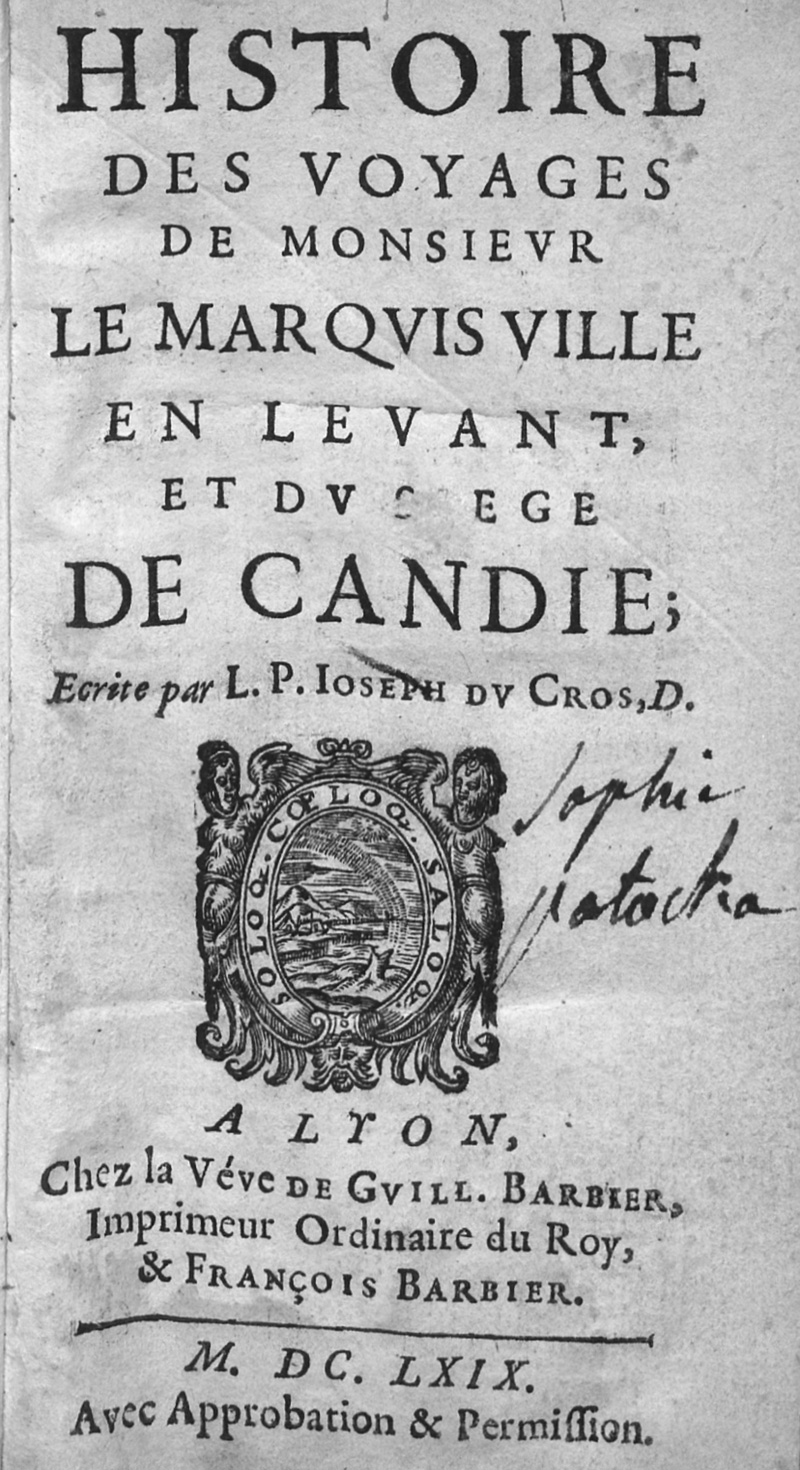 HISTOIRE
DES VOYAGES
DE MONSIEVR
LE MARQVIS VILLE
EN LEVANT,
ET DV S EGE
DE CANDIE;
Ecrite par L. P. IOSEPH DV CROS, D.
SOLOQ. CŒLOQ. SALOQ.
Sophie
potocka
A LYON,
Chez la Véve DE GVILL. BARBIER,
Imprimeur Ordinaire du Roy,
& FRANÇOIS BARBIER.
M. DC. LXIX.
Avec Approbation & Permiſſion.